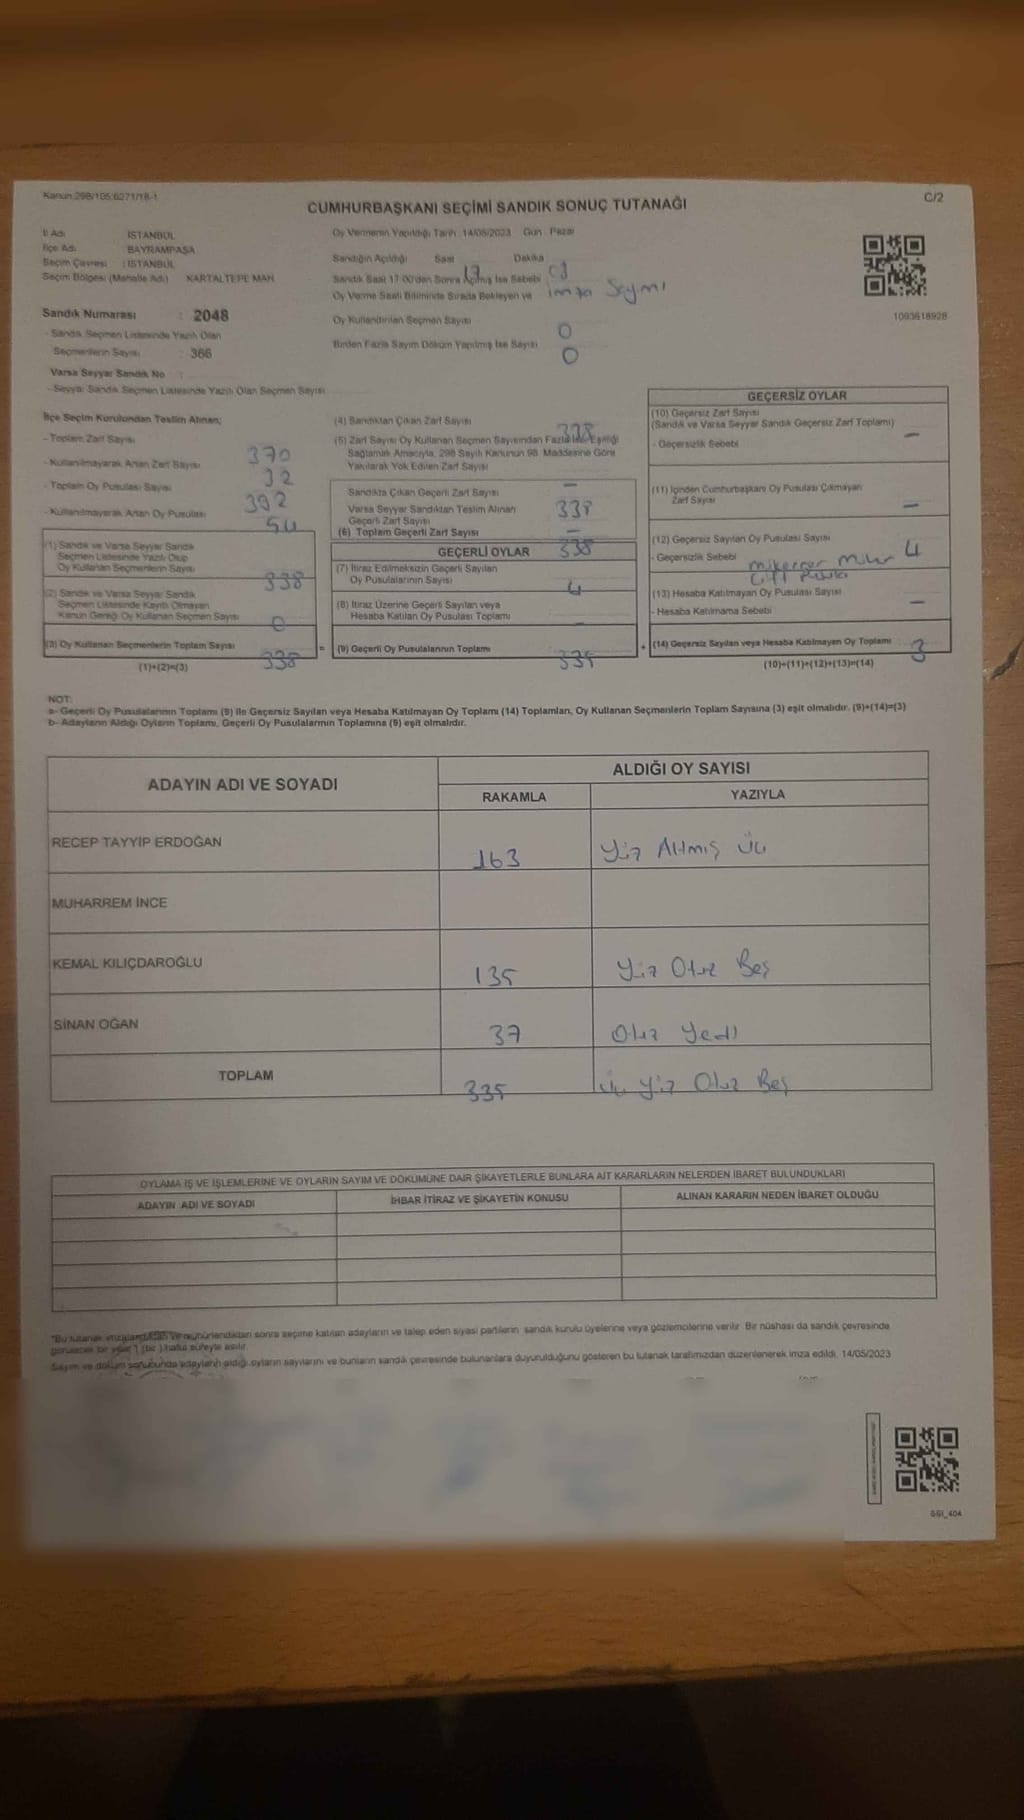 Kanun:298/105;6271/18-1
C/2
CUMHURBAŞKANI SEÇİMİ SANDIK SONUÇ TUTANAĞI
İl Adı : İSTANBUL
İlçe Adı : BAYRAMPAŞA
Seçim Çevresi : İSTANBUL
Seçim Bölgesi (Mahalle Adı) KARTALTEPE MAH.
Sandık Numarası : 2048
- Sandık Seçmen Listesinde Yazılı Olan
Seçmenlerin Sayısı : 366
Varsa Seyyar Sandık No :
- Seyyar Sandık Seçmen Listesinde Yazılı Olan Seçmen Sayısı
Oy Vermenin Yapıldığı Tarih :14/05/2023 Gün : Pazar
Sandığın Açıldığı Saat 17 Dakika 03
Sandık Saat 17:00'den Sonra Açılmış İse Sebebi imza Sayımı
Oy Verme Saati Bitiminde Sırada Bekleyen ve
Oy Kullandırılan Seçmen Sayısı 0
Birden Fazla Sayım Döküm Yapılmış İse Sayısı 0
1093618928
İlçe Seçim Kurulundan Teslim Alınan;
- Toplam Zarf Sayısı 370
- Kullanılmayarak Artan Zarf Sayısı 32
- Toplam Oy Pusulası Sayısı 392
- Kullanılmayarak Artan Oy Pusulası 54
(1) Sandık ve Varsa Seyyar Sandık
Seçmen Listesinde Yazılı Olup
Oy Kullanan Seçmenlerin Sayısı 338
(2) Sandık ve Varsa Seyyar Sandık
Seçmen Listesinde Kayıtlı Olmayan
Kanun Gereği Oy Kullanan Seçmen Sayısı 0
(3) Oy Kullanan Seçmenlerin Toplam Sayısı 338
(1)+(2)=(3)
(4) Sandıktan Çıkan Zarf Sayısı 338
(5) Zarf Sayısı Oy Kullanan Seçmen Sayısından Fazla İse, Eşitliği
Sağlamak Amacıyla, 298 Sayılı Kanunun 98. Maddesine Göre
Yakılarak Yok Edilen Zarf Sayısı –
Sandıkta Çıkan Geçerli Zarf Sayısı 338
Varsa Seyyar Sandıktan Teslim Alınan
Geçerli Zarf Sayısı –
(6) Toplam Geçerli Zarf Sayısı 338
GEÇERLİ OYLAR
(7) İtiraz Edilmeksizin Geçerli Sayılan
Oy Pusulalarının Sayısı 4
(8) İtiraz Üzerine Geçerli Sayılan veya
Hesaba Katılan Oy Pusulası Toplamı –
= (9) Geçerli Oy Pusulalarının Toplamı 335
GEÇERSİZ OYLAR
(10) Geçersiz Zarf Sayısı
(Sandık ve Varsa Seyyar Sandık Geçersiz Zarf Toplamı) –
- Geçersizlik Sebebi
(11) İçinden Cumhurbaşkanı Oy Pusulası Çıkmayan
Zarf Sayısı –
(12) Geçersiz Sayılan Oy Pusulası Sayısı 4
- Geçersizlik Sebebi mükerrer mühür
çift Pusula
(13) Hesaba Katılmayan Oy Pusulası Sayısı –
- Hesaba Katılmama Sebebi
+ (14) Geçersiz Sayılan veya Hesaba Katılmayan Oy Toplamı 3
(10)+(11)+(12)+(13)=(14)
NOT:
a- Geçerli Oy Pusulasının Toplamı (9) ile Geçersiz Sayılan veya Hesaba Katılmayan Oy Toplamı (14) Toplamları, Oy Kullanan Seçmenlerin Toplam Sayısına (3) eşit olmalıdır. (9)+(14)=(3)
b- Adayların Aldığı Oyların Toplamı, Geçerli Oy Pusulalarının Toplamına (9) eşit olmalıdır.
ADAYIN ADI VE SOYADI
ALDIĞI OY SAYISI
RAKAMLA YAZIYLA
RECEP TAYYİP ERDOĞAN 163 Yüz Altmış Üç
MUHARREM İNCE
KEMAL KILIÇDAROĞLU 135 Yüz Otuz Beş
SİNAN OĞAN 37 Otuz Yedi
TOPLAM 335 Üç Yüz Otuz Beş
OYLAMA İŞ VE İŞLEMLERİNE VE OYLARIN SAYIM VE DÖKÜMÜNE DAİR ŞİKAYETLERLE BUNLARA AİT KARARLARIN NELERDEN İBARET BULUNDUKLARI
ADAYIN ADI VE SOYADI İHBAR İTİRAZ VE ŞİKAYETİN KONUSU ALINAN KARARIN NEDEN İBARET OLDUĞU
*Bu tutanak imzalandıktan ve mühürlendikten sonra seçime katılan adayların ve talep eden siyasi partilerin sandık kurulu üyelerine veya gözlemcilerine verilir. Bir nüshası da sandık çevresinde
görülecek bir yere 1 (bir) hafta süreyle asılır.
Sayım ve döküm sonucunda adayların aldığı oyların sayılarını ve bunların sandık çevresinde bulunanlara duyurulduğunu gösteren bu tutanak tarafımızdan düzenlenerek imza edildi. 14/05/2023